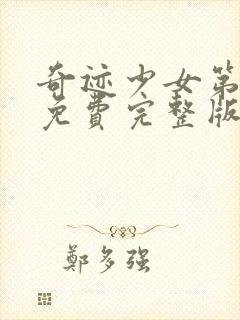 奇迹少女第
免費完整版
鄭多强